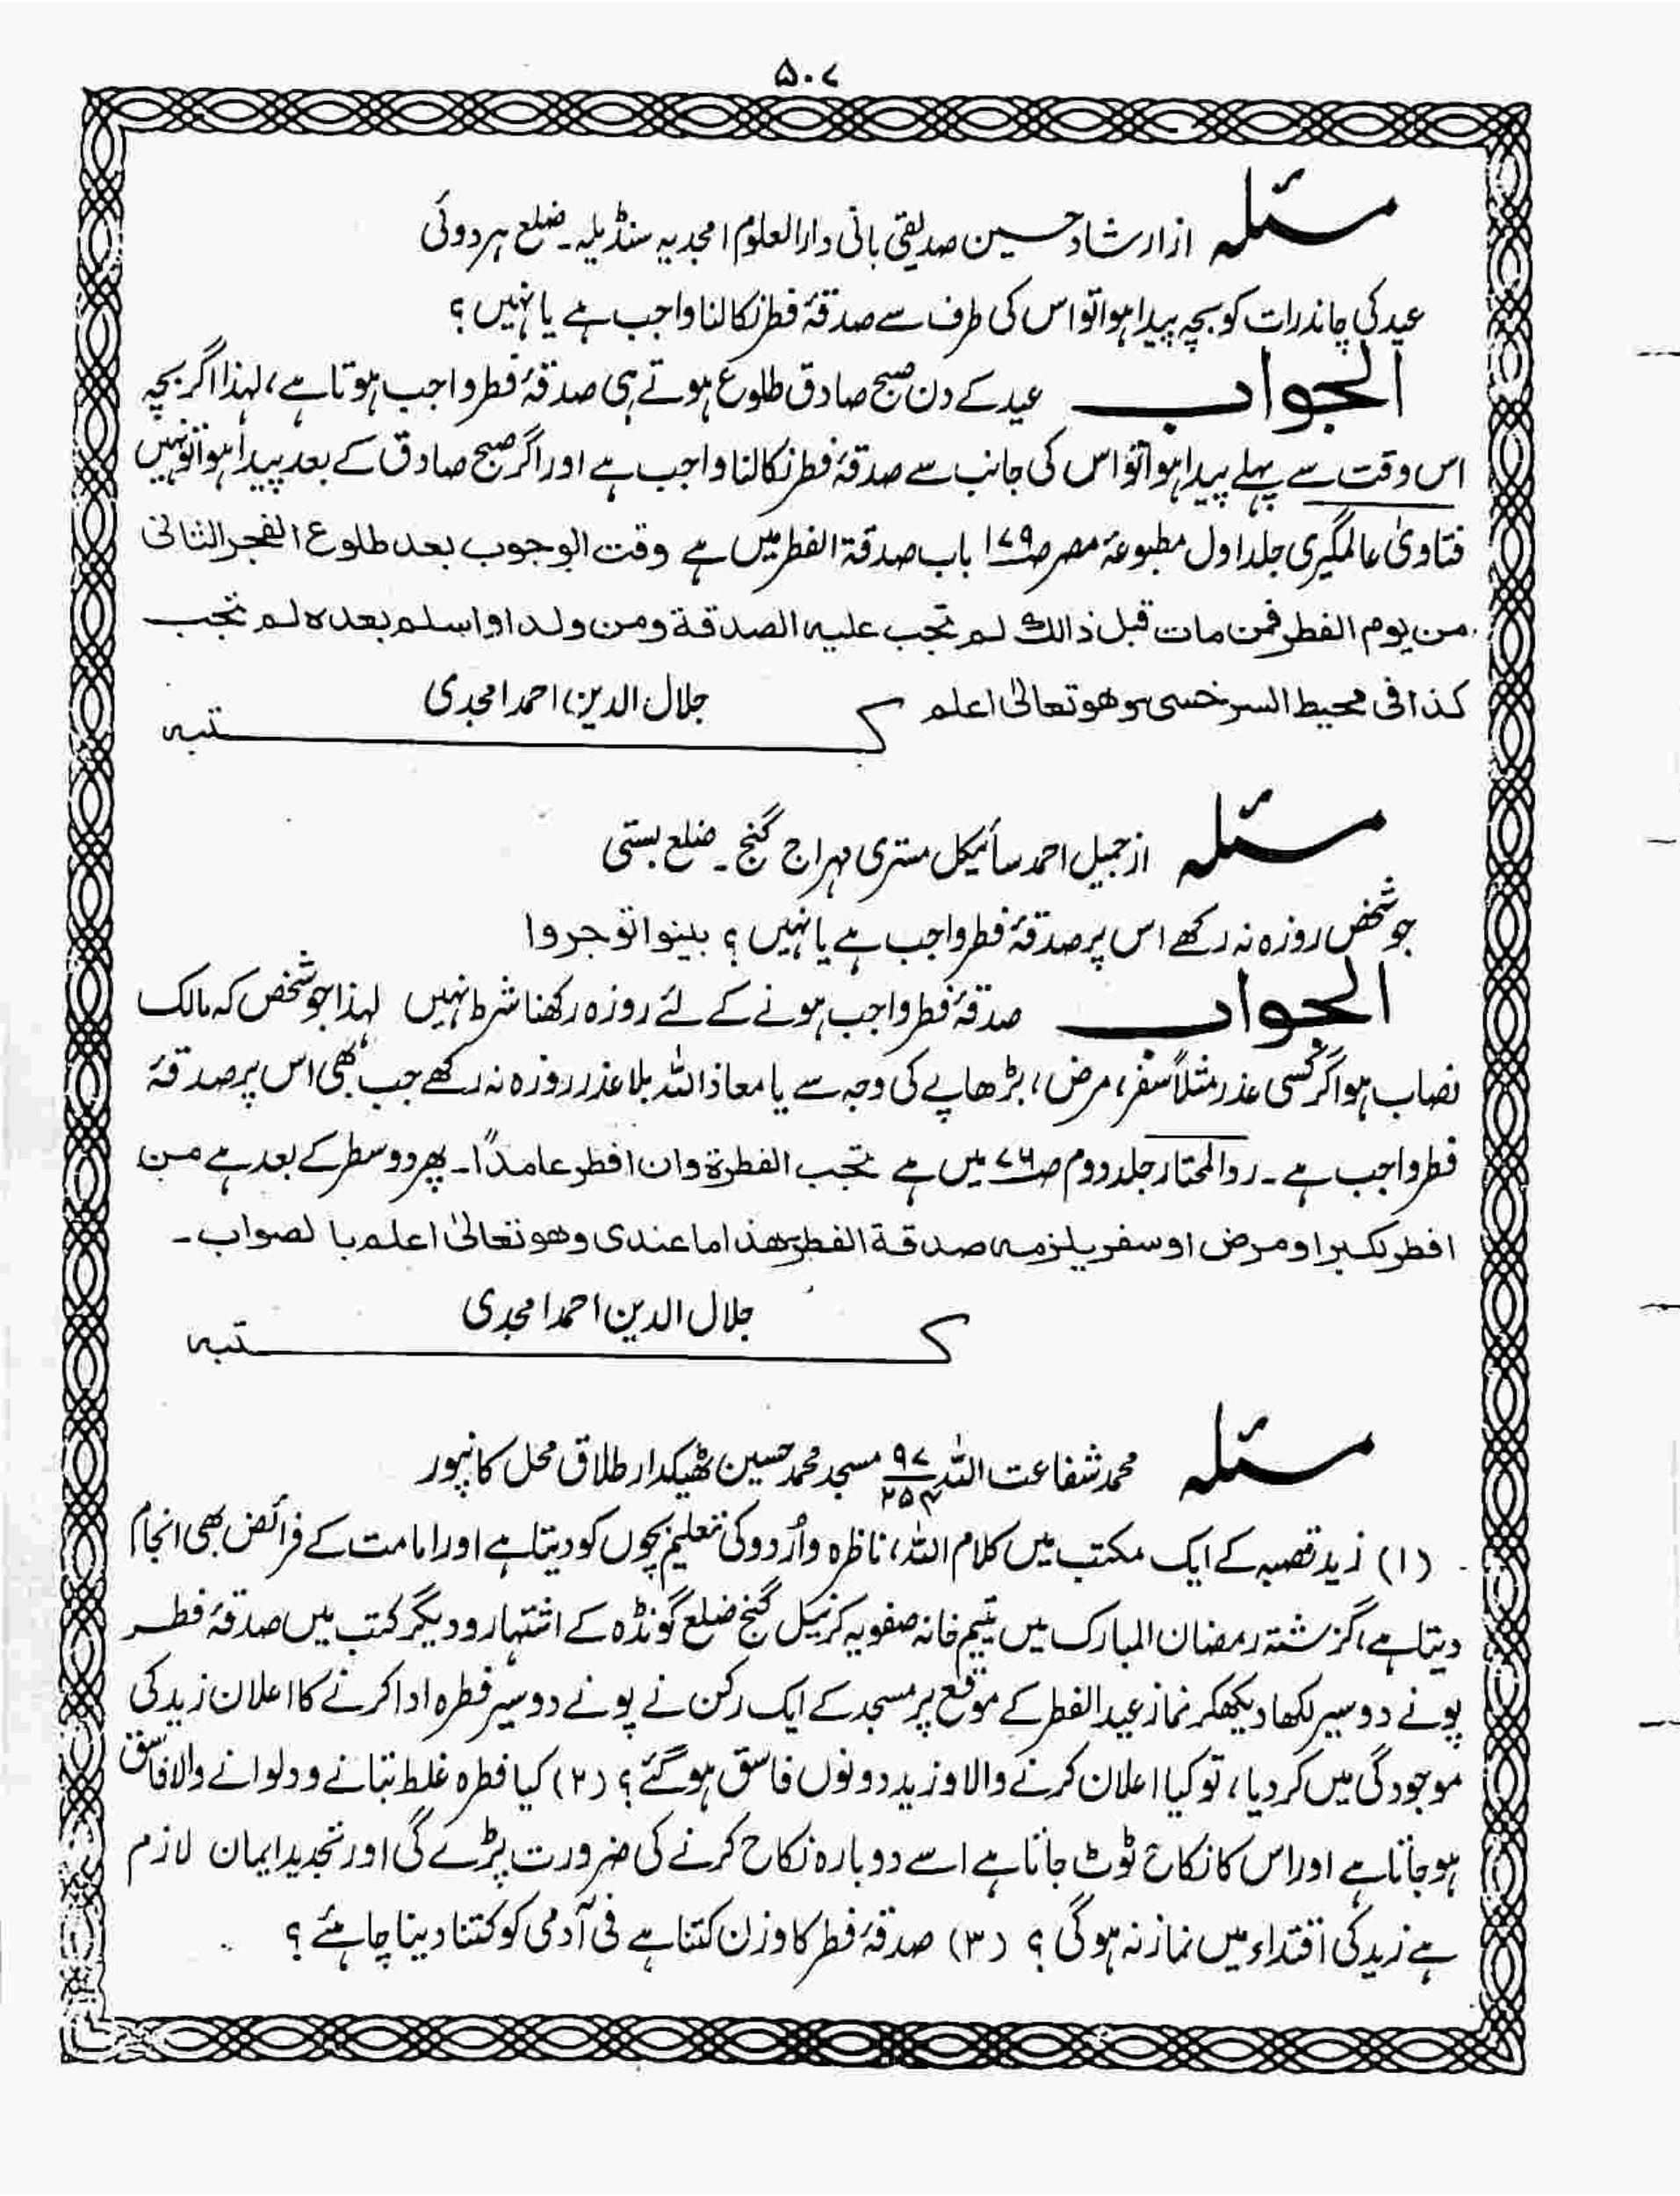 ۵۰۷
مسئلہ از ارشاد حسین صدیقی بانی دارالعلوم امجدیہ سنڈیلہ۔ ضلع ہردوئی
عید کی چاند رات کو بچہ پیدا ہوا تو اس کی طرف سے صدقۂ فطر نکالنا واجب ہے یا نہیں؟
الجواب عید کے دن صبح صادق طلوع ہوتے ہی صدقۂ فطر واجب ہوتا ہے، لہذا اگر بچہ
اس وقت سے پہلے پیدا ہوا تو اس کی جانب سے صدقۂ فطر نکالنا واجب ہے اور اگر صبح صادق کے بعد پیدا ہوا تو نہیں
فتاویٰ عالمگیری جلد اول مطبوعۂ مصر ص۱۷۹ باب صدقۃ الفطر میں ہے وقت الوجوب بعد طلوع الفجر الثانی
من یوم الفطر فمن مات قبل ذالك لم تجب علیہ الصدقۃ ومن ولد او اسلم بعدہ لم تجب
کذا فی محیط السرخسی وھو تعالیٰ اعلم
جلال الدین احمد امجدی
کتبہ
مسئلہ از جمیل احمد سائیکل مستری مہراج گنج۔ ضلع بستی
جو شخص روزہ نہ رکھے اس پر صدقۂ فطر واجب ہے یا نہیں؟ بینوا توجروا
الجواب صدقۂ فطر واجب ہونے کے لئے روزہ رکھنا شرط نہیں لہذا جو شخص کہ مالک
نصاب ہو اگر کسی عذر مثلاً سفر، مرض، بڑھاپے کی وجہ سے یا معاذ اللہ بلا عذر روزہ نہ رکھے جب بھی اس پر صدقۂ
فطر واجب ہے۔ ردالمحتار جلد دوم ص۷۶ میں ہے تجب الفطرۃ وان افطر عامداً۔ پھر دو سطر کے بعد ہے من
افطر لکبر او مرض او سفر یلزمہ صدقۃ الفطر ھذا ما عندی وھو تعالیٰ اعلم بالصواب۔
جلال الدین احمد امجدی
کتبہ
مسئلہ محمد شفاعت اللہ ۹۷/۲۵۴ مسجد محمد حسین ٹھیکدار طلاق محل کانپور
(۱) زید قصبہ کے ایک مکتب میں کلام اللہ، ناظرہ و اُردو کی تعلیم بچوں کو دیتا ہے اور امامت کے فرائض بھی انجام
دیتا ہے، گزشتہ رمضان المبارک میں یتیم خانہ صفویہ کرنیل گنج ضلع گونڈہ کے اشتہار و دیگر کتب میں صدقۂ فطر
پونے دو سیر لکھا دیکھکر نماز عید الفطر کے موقع پر مسجد کے ایک رکن نے پونے دو سیر فطرہ ادا کرنے کا اعلان زید کی
موجودگی میں کر دیا، تو کیا اعلان کرنے والا و زید دونوں فاسق ہو گئے؟ (۲) کیا فطرہ غلط بتانے و دلوانے والا فاسق
ہو جاتا ہے اور اس کا نکاح ٹوٹ جاتا ہے اسے دوبارہ نکاح کرنے کی ضرورت پڑے گی اور تجدید ایمان لازم
ہے زید کی اقتداء میں نماز نہ ہوگی؟ (۳) صدقۂ فطر کا وزن کتنا ہے فی آدمی کو کتنا دینا چاہئے؟